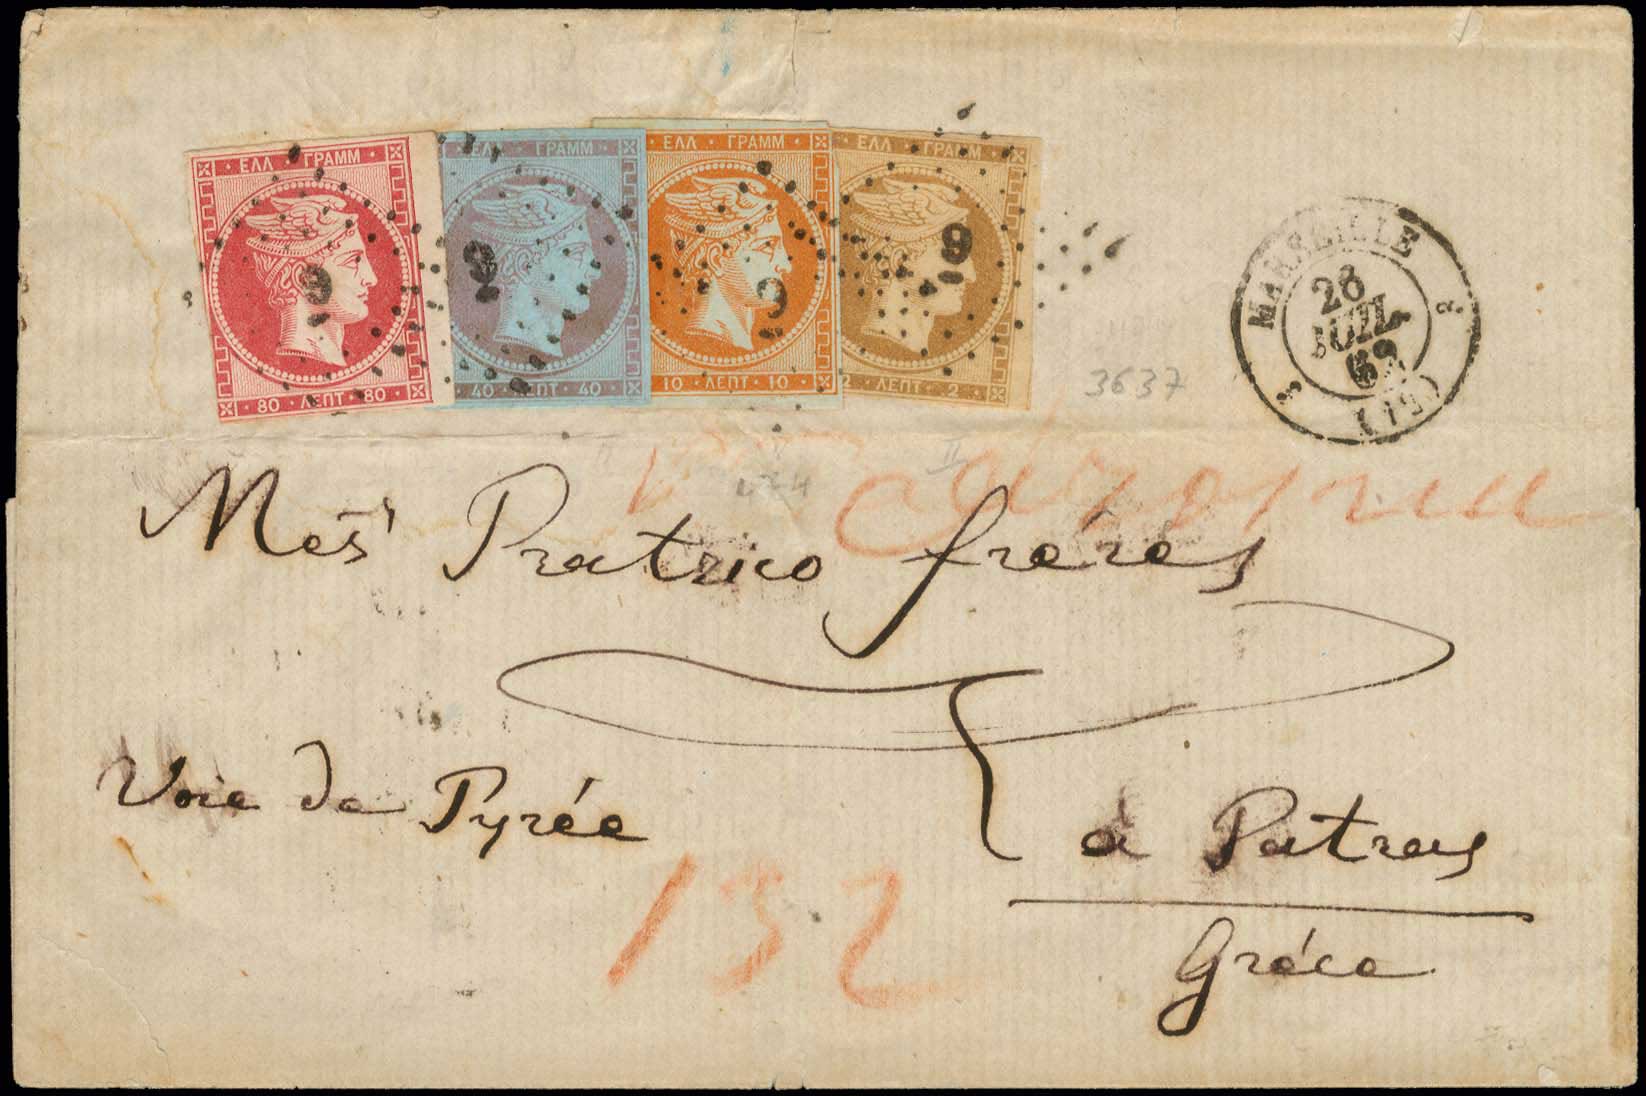 ΕΛΛ · ΓΡΑΜΜ
80 · ΛΕΠΤ · 80
9
ΕΛΛ · ΓΡΑΜΜ
40 · ΛΕΠΤ · 40
9
ΕΛΛ · ΓΡΑΜΜ
10 · ΛΕΠΤ · 10
9
ΕΛΛ · ΓΡΑΜΜ
2 · ΛΕΠΤ · 2
9
MARSEILLE
28
JUIL.
(12)
3637
Mes⁠rs Pratzico frères
Voie de Pyrée
à Patras
Gréce
132